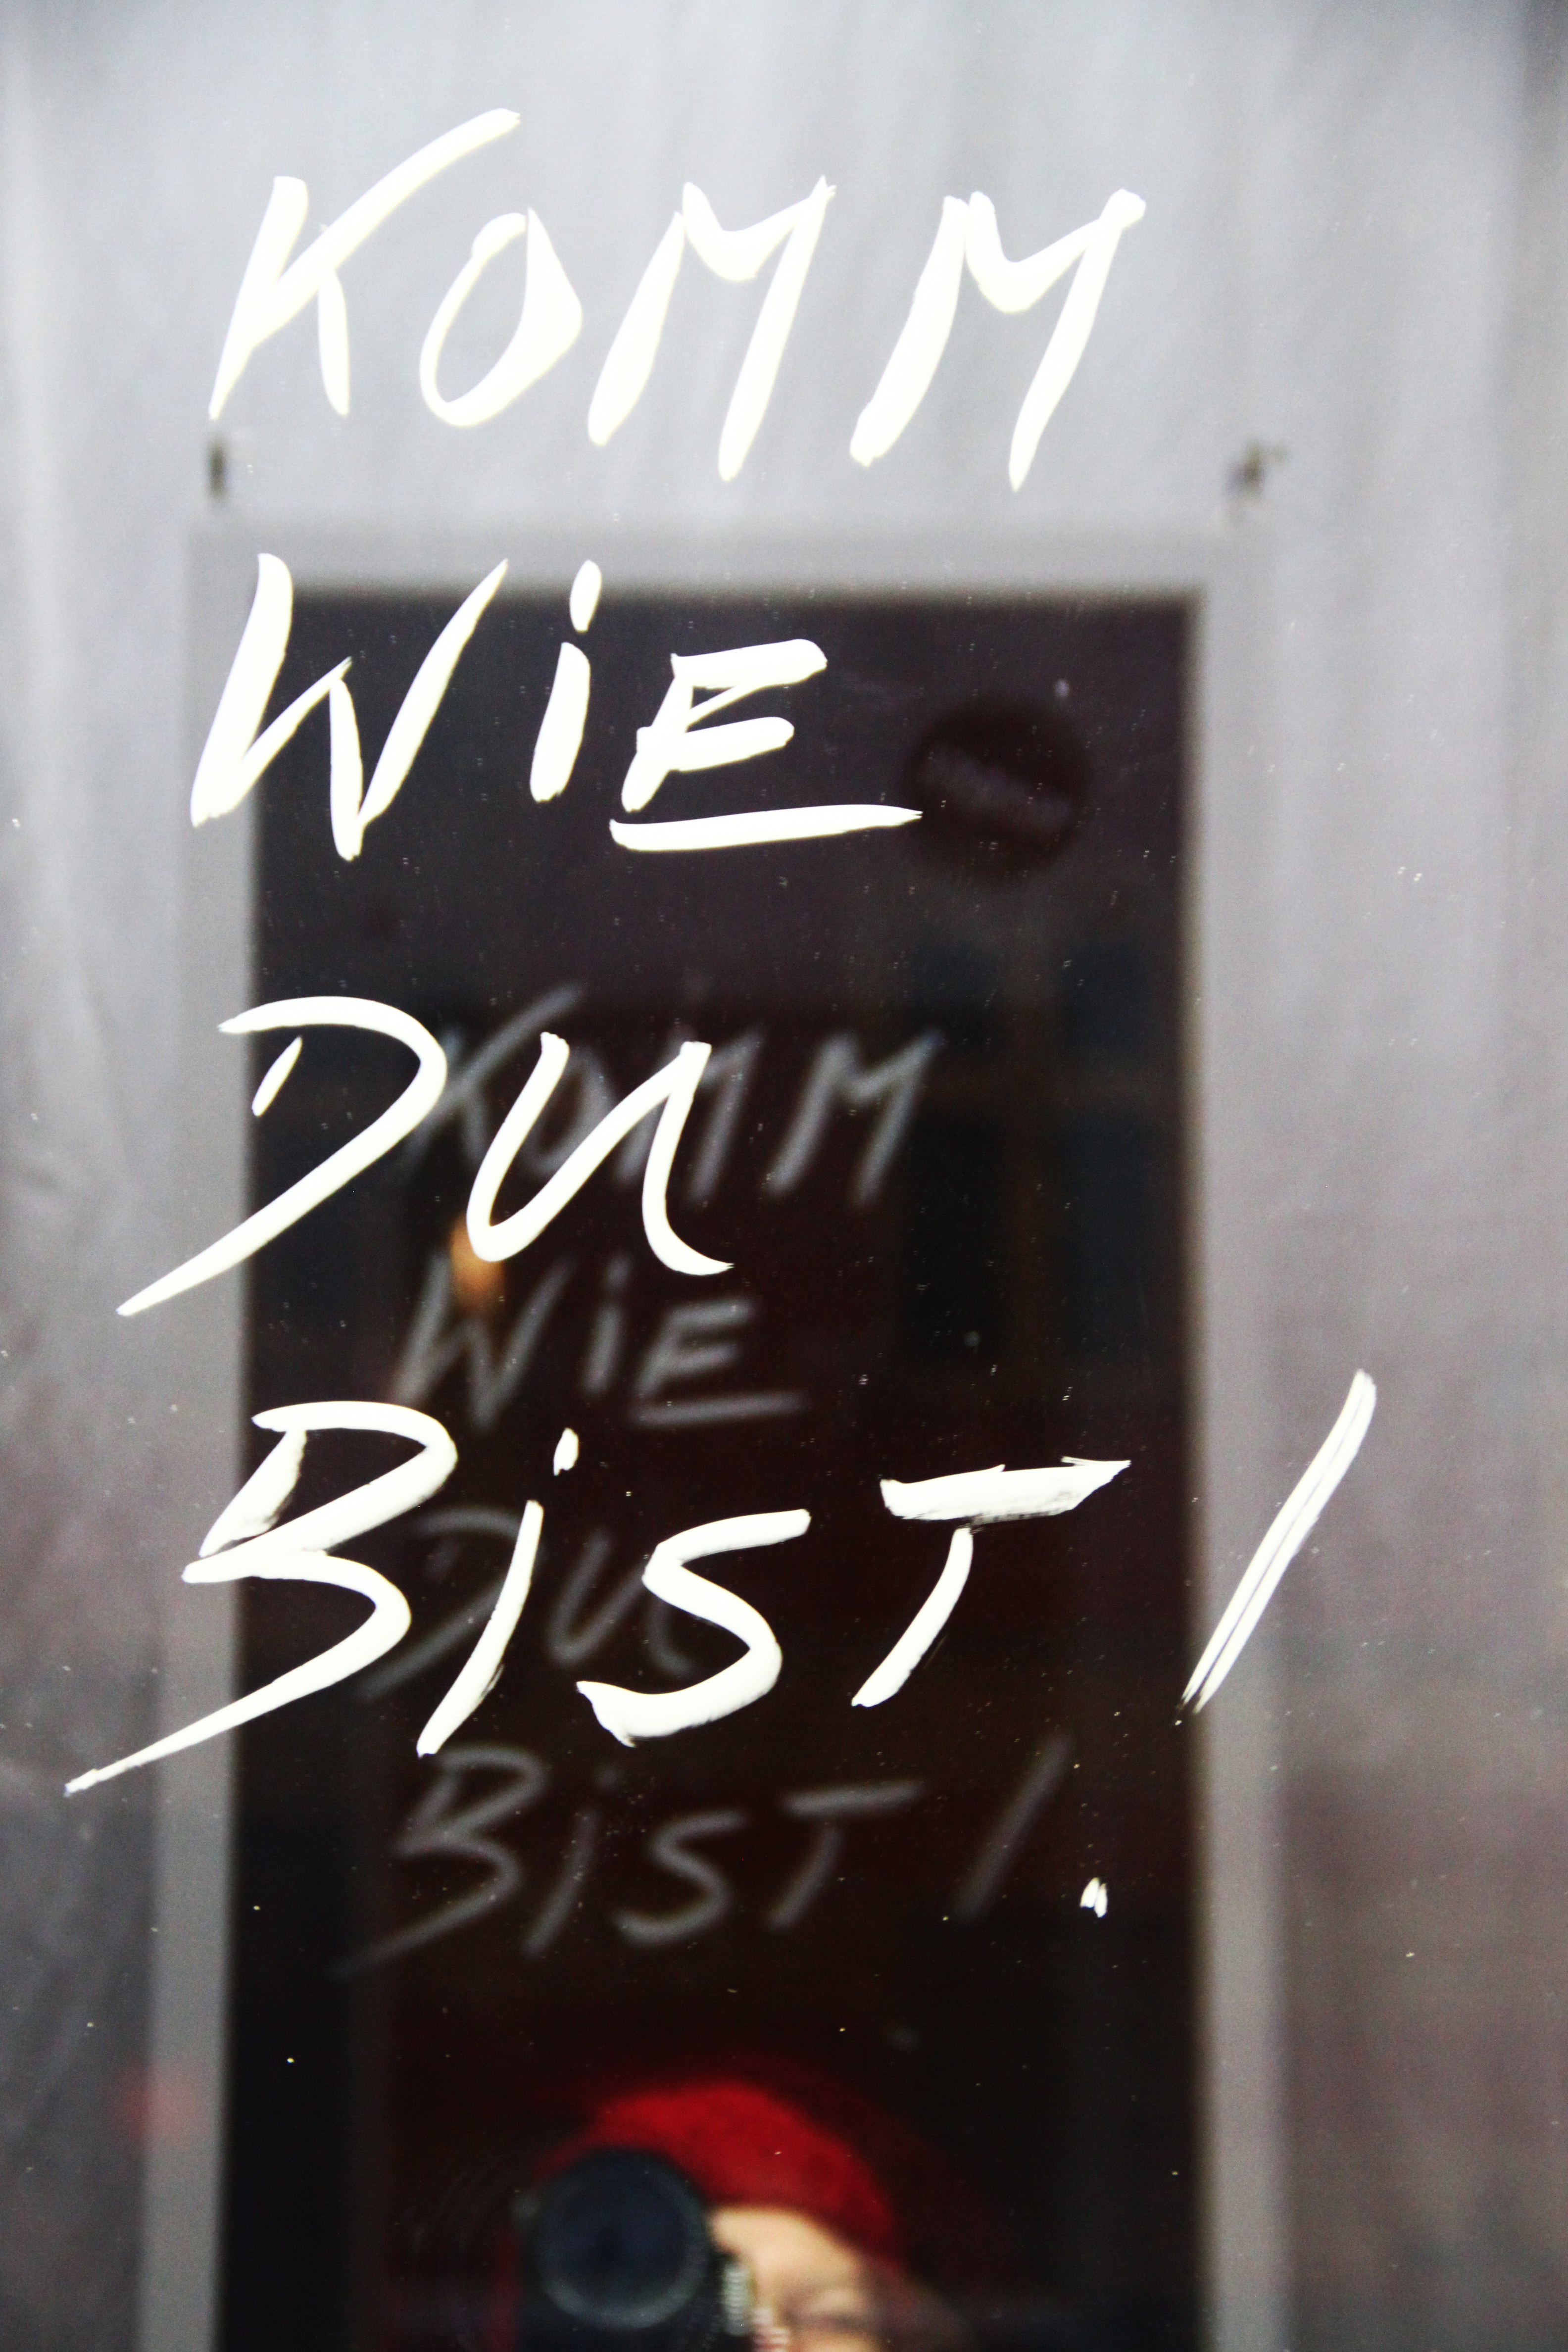 KOMM
WiE
DU
BiST!
KOMM
WiE
DU
BiST!